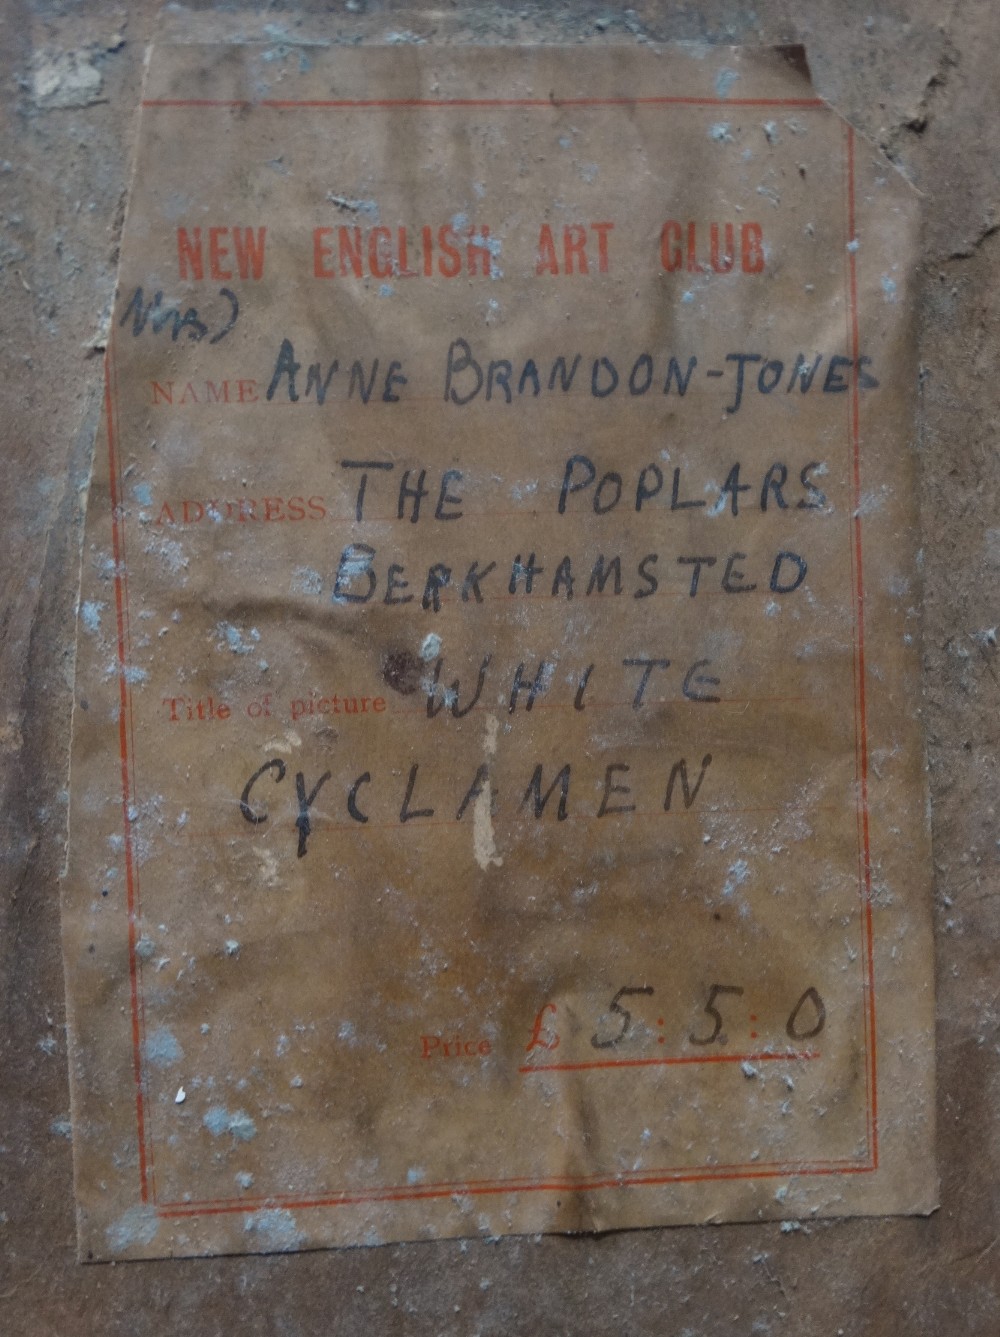 NEW ENGLISH ART CLUB
(Mrs)
NAME ANNE BRANDON-JONES
ADDRESS THE POPLARS
BERKHAMSTED
Title of picture WHITE
CYCLAMEN
Price £ 5 : 5 : 0